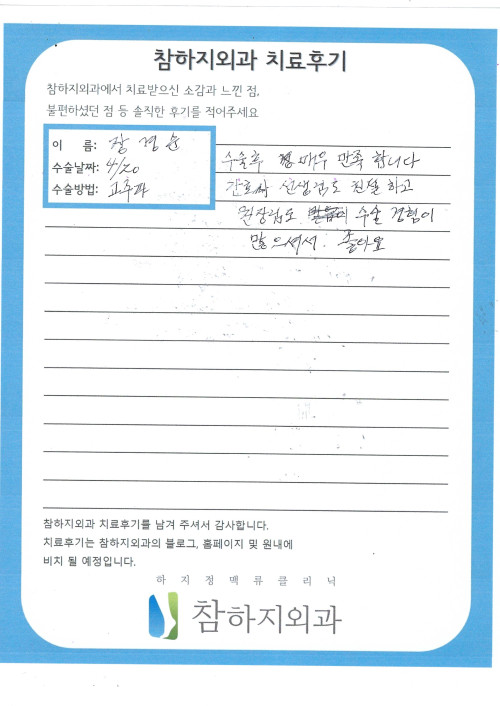 참하지외과 치료후기
참하지외과에서 치료받으신 소감과 느낀 점,
불편하셨던 점 등 솔직한 후기를 적어주세요
이 름: 장경순
수술날짜: 4/20
수술방법: 고주파
수술후 매우 만족 합니다
간호사 선생님도 친절 하고
원장님도 수술 경험이
많으셔서. 좋아요
참하지외과 치료후기를 남겨 주셔서 감사합니다.
치료후기는 참하지외과의 블로그, 홈페이지 및 원내에
비치 될 예정입니다.
하지정맥류클리닉
참하지외과